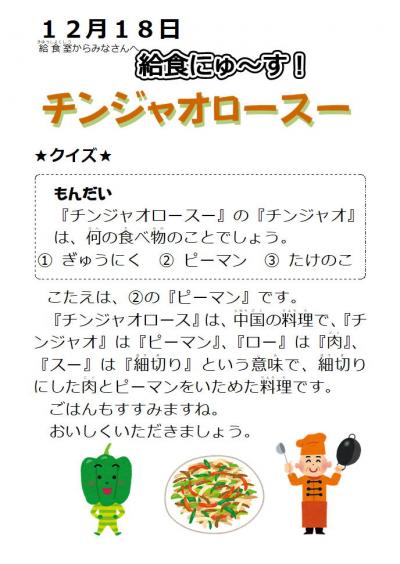 12月18日
給食室からみなさんへ
給食にゅ～す！
チンジャオロースー
★クイズ★
もんだい
『チンジャオロースー』の『チンジャオ』
は、何の食べ物のことでしょう。
① ぎゅうにく ② ピーマン ③ たけのこ
こたえは、②の『ピーマン』です。
『チンジャオロース』は、中国の料理で、『チ
ンジャオ』は『ピーマン』、『ロー』は『肉』、
『スー』は『細切り』という意味で、細切り
にした肉とピーマンをいためた料理です。
ごはんもすすみますね。
おいしくいただきましょう。